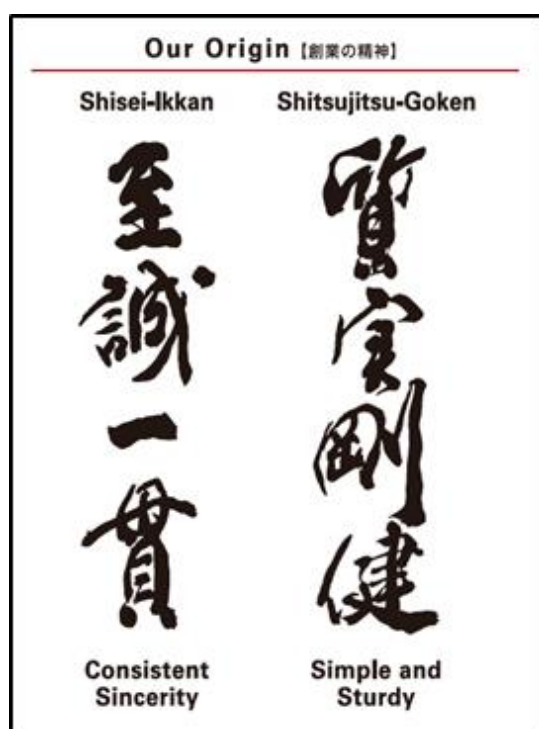 Our Origin【創業の精神】
Shisei-Ikkan
至誠一貫
Consistent
Sincerity
Shitsujitsu-Goken
質実剛健
Simple and
Sturdy